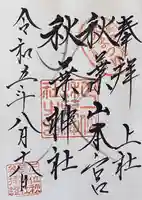 奉拝
上社
秋葉山本宮
秋葉神社
令和五年八月十八日